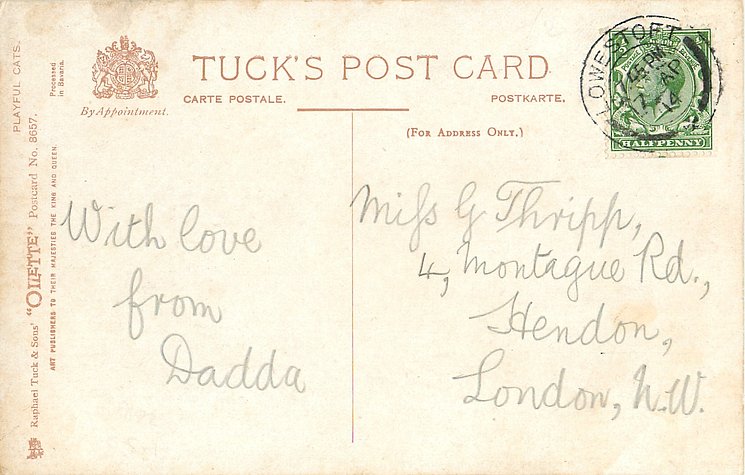 TUCK'S POST CARD
CARTE POSTALE.
POSTKARTE.
By Appointment.
(FOR ADDRESS ONLY.)
PLAYFUL CATS.
Processed
in Bavaria.
Raphael Tuck & Sons' "OILETTE" Postcard No. 8657.
ART PUBLISHERS TO THEIR MAJESTIES THE KING AND QUEEN.
LOWESTOFT
PM
17 AP
14
HALFPENNY
With love
from
Dadda
Miss G Thripp,
4, Montague Rd.,
Hendon,
London, N.W.